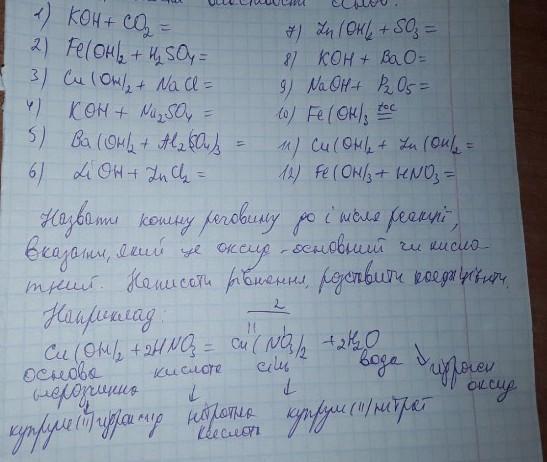 1) KOH + CO₂ =
2) Fe(OH)₂ + H₂SO₄ =
3) Cu(OH)₂ + NaCl =
4) KOH + Na₂SO₄ =
5) Ba(OH)₂ + Al₂(SO₄)₃ =
6) LiOH + ZnCl₂ =
7) Zn(OH)₂ + SO₃ =
8) KOH + BaO =
9) NaOH + P₂O₅ =
10) Fe(OH)₃ =
11) Cu(OH)₂ + Zn(OH)₂ =
12) Fe(OH)₃ + HNO₃ =
Назвати кожну речовину до і після реакції,
вказати, який це оксид - основний чи кисло-
тний. Написати рівняння, розставити коефіцієнти.
Наприклад:
2
II I
Cu(OH)₂ + 2HNO₃ = Cu(NO₃)₂ + 2H₂O
основа кислота сіль вода ↘ гідроген
нерозчинна ↓ ↓ оксид
купрум(II) гідроксид нітратна купрум(II) нітрат
кислота